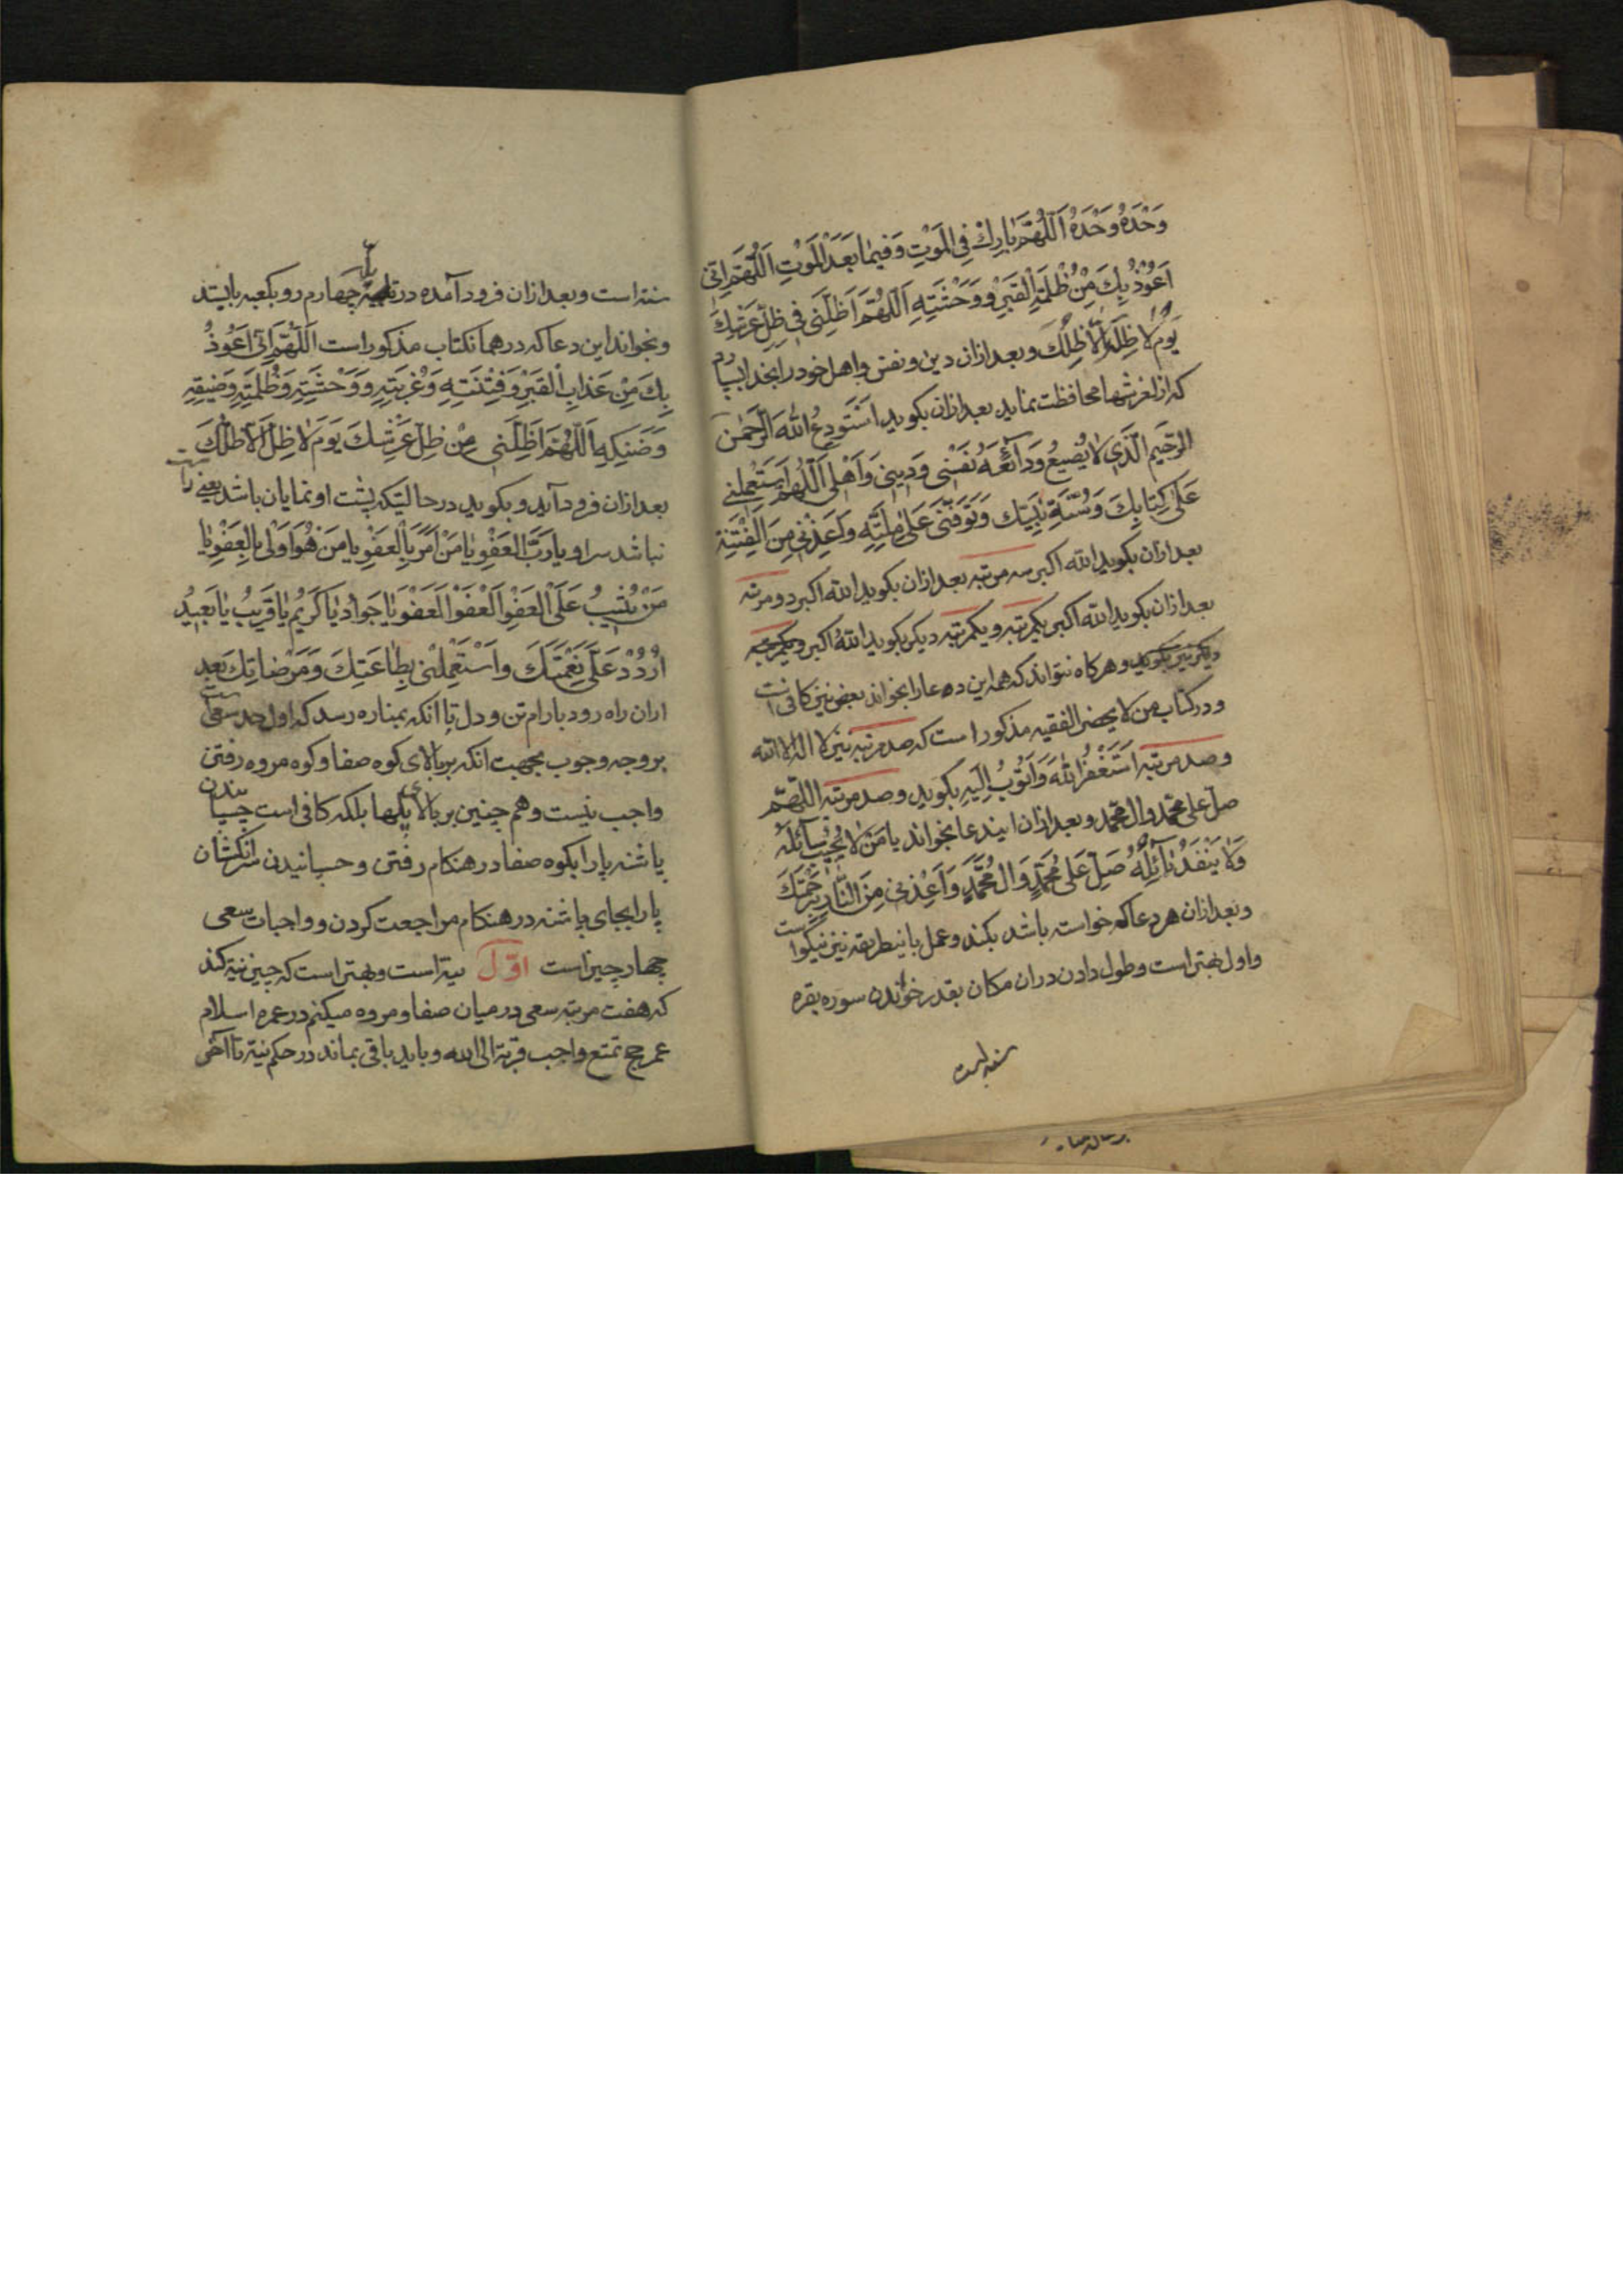 وَحْدَهُ وَحْدَهُ اَللّهُمَّ بارِكْ فِي الْمَوْتِ وَفيما بَعْدَ الْمَوْتِ اَللّهُمَّ اِنّي
اَعُوذُ بِكَ مِنْ ظُلْمَةِ الْقَبْرِ وَ وَحْشَتِهِ اَللّهُمَّ اَظِلَّنی فی ظِلِّ عَرْشِكَ
یَوْمَ لا ظِلَّ اِلّا ظِلُّكَ وبعد ازان دین ونفس واهل خود را بخدا بسپارد
که از لغزشها محافظت نماید بعد ازان بکوید اَسْتَودِعُ اللهَ الرَّحْمنَ
الرَّحیمَ الَّذی لا یُضیعُ وَدائِعَهُ نَفْسْی وَدینی وَاَهْلی اَللّهُمَّ اسْتَعْمِلْنی
عَلی کِتابِكَ وَسُنَّةِ نَبِیِّكَ وَتَوَفَّنی عَلی مِلَّتِهِ وَاَعِذْنی مِنَ الْفِتْنَةِ
بعد ازان بکوید الله اکبر سه مرتبه بعد ازان بکوید الله اکبر دو مرتبه
بعد ازان بکوید الله اکبر یکمرتبه ویکمرتبه دیکر بکوید اللهُ اکبر ویکمرتبه
دیکر نیز بکوید وهرکاه نتواند که همه این دعا را بخواند بعضی نیز کافی است
ودر کتاب من لا یحضر الفقیه مذکور است که صد مرتبه نیز لا اله الا الله
وصد مرتبه اَسْتَغْفِرُ اللهَ وَاَتُوبُ اِلَیهِ بکوید وصد مرتبه اللهُمَّ
صل علی محمّد وال محمّد وبعد ازان ایندعا بخواند یا مَنْ لا یُخَیِّبُ سآئِلَهُ
وَلا یَنْفَدُ نآئِلُهُ صَلِّ عَلی مُحَمَّدٍ وَالِ مُحَمَّدٍ وَاَعِذْنی مِنَ النّارِ بِرَحْمَتِكَ
وبعد ازان هر دعا که خواسته باشد بکند وعمل باینطریقه نیز نیکواست
واول بهتر است وطول دادن دران مکان بقدر خواندن سوره بقره
سنة است
سنة است وبعد ازان فرود آمده در پله چهارم رو بکعبه بایستد
وبخواند این دعا که در همانکتاب مذکور است اَللّهُمَّ اِنّی اَعُوذُ
بِكَ مِنْ عَذابِ الْقَبْرِ وَفِتْنَتِهِ وَغُرْبَتِهِ وَوَحْشَتِهِ وَظُلْمَتِهِ وَضیقِهِ
وَضَنْکِهِ اَللّهُمَّ اَظِلَّنی مِنْ ظِلِّ عَرْشِكَ یَوْمَ لا ظِلَّ اِلّا ظِلُّكَ
بعد ازان فرود آید وبکوید در حالتیکه پشت او نمایان باشد یعنی راست
نباشد سر او یا رَبَّ الْعَفْوِ یا مَنْ اَمَرَ بِالْعَفْوِ یا مَنْ هُوَ اَوْلی بِالْعَفْوِ یا
مَنْ یُثیبُ عَلَی الْعَفْوِ اَلْعَفْوَ اَلْعَفْوَ اَلْعَفْوَ یا جَوادُ یا کَریمُ یا قَریبُ یا بَعیدُ
اُرْدُدْ عَلَیَّ نِعْمَتَكَ وَاسْتَعْمِلْنی بِطاعَتِكَ وَمَرْضاتِكَ بعد
ازان راه رود بارام تن ودل تا انکه بمناره رسد که اول حد سعی است
بر وجه وجوب بجهت انکه بر بالای کوه صفا وکوه مروه رفتن
واجب نیست وهم چنین بر بالای پلها بلکه کافی است چسپانیدن
پاشنه پا را بکوه صفا در هنکام رفتن وچسپانیدن سر انکشتان
پا را بجای پاشنه در هنکام مراجعت کردن و واجبات سعی
چهار چیز است اوّل نیة است وبهتر است که چنین نیة کند
که هفت مرتبه سعی در میان صفا ومروه میکنم در عمره اسلام
عمره حج تمتع واجب قربة الی الله وباید باقی بماند در حکم نیة تا آخر